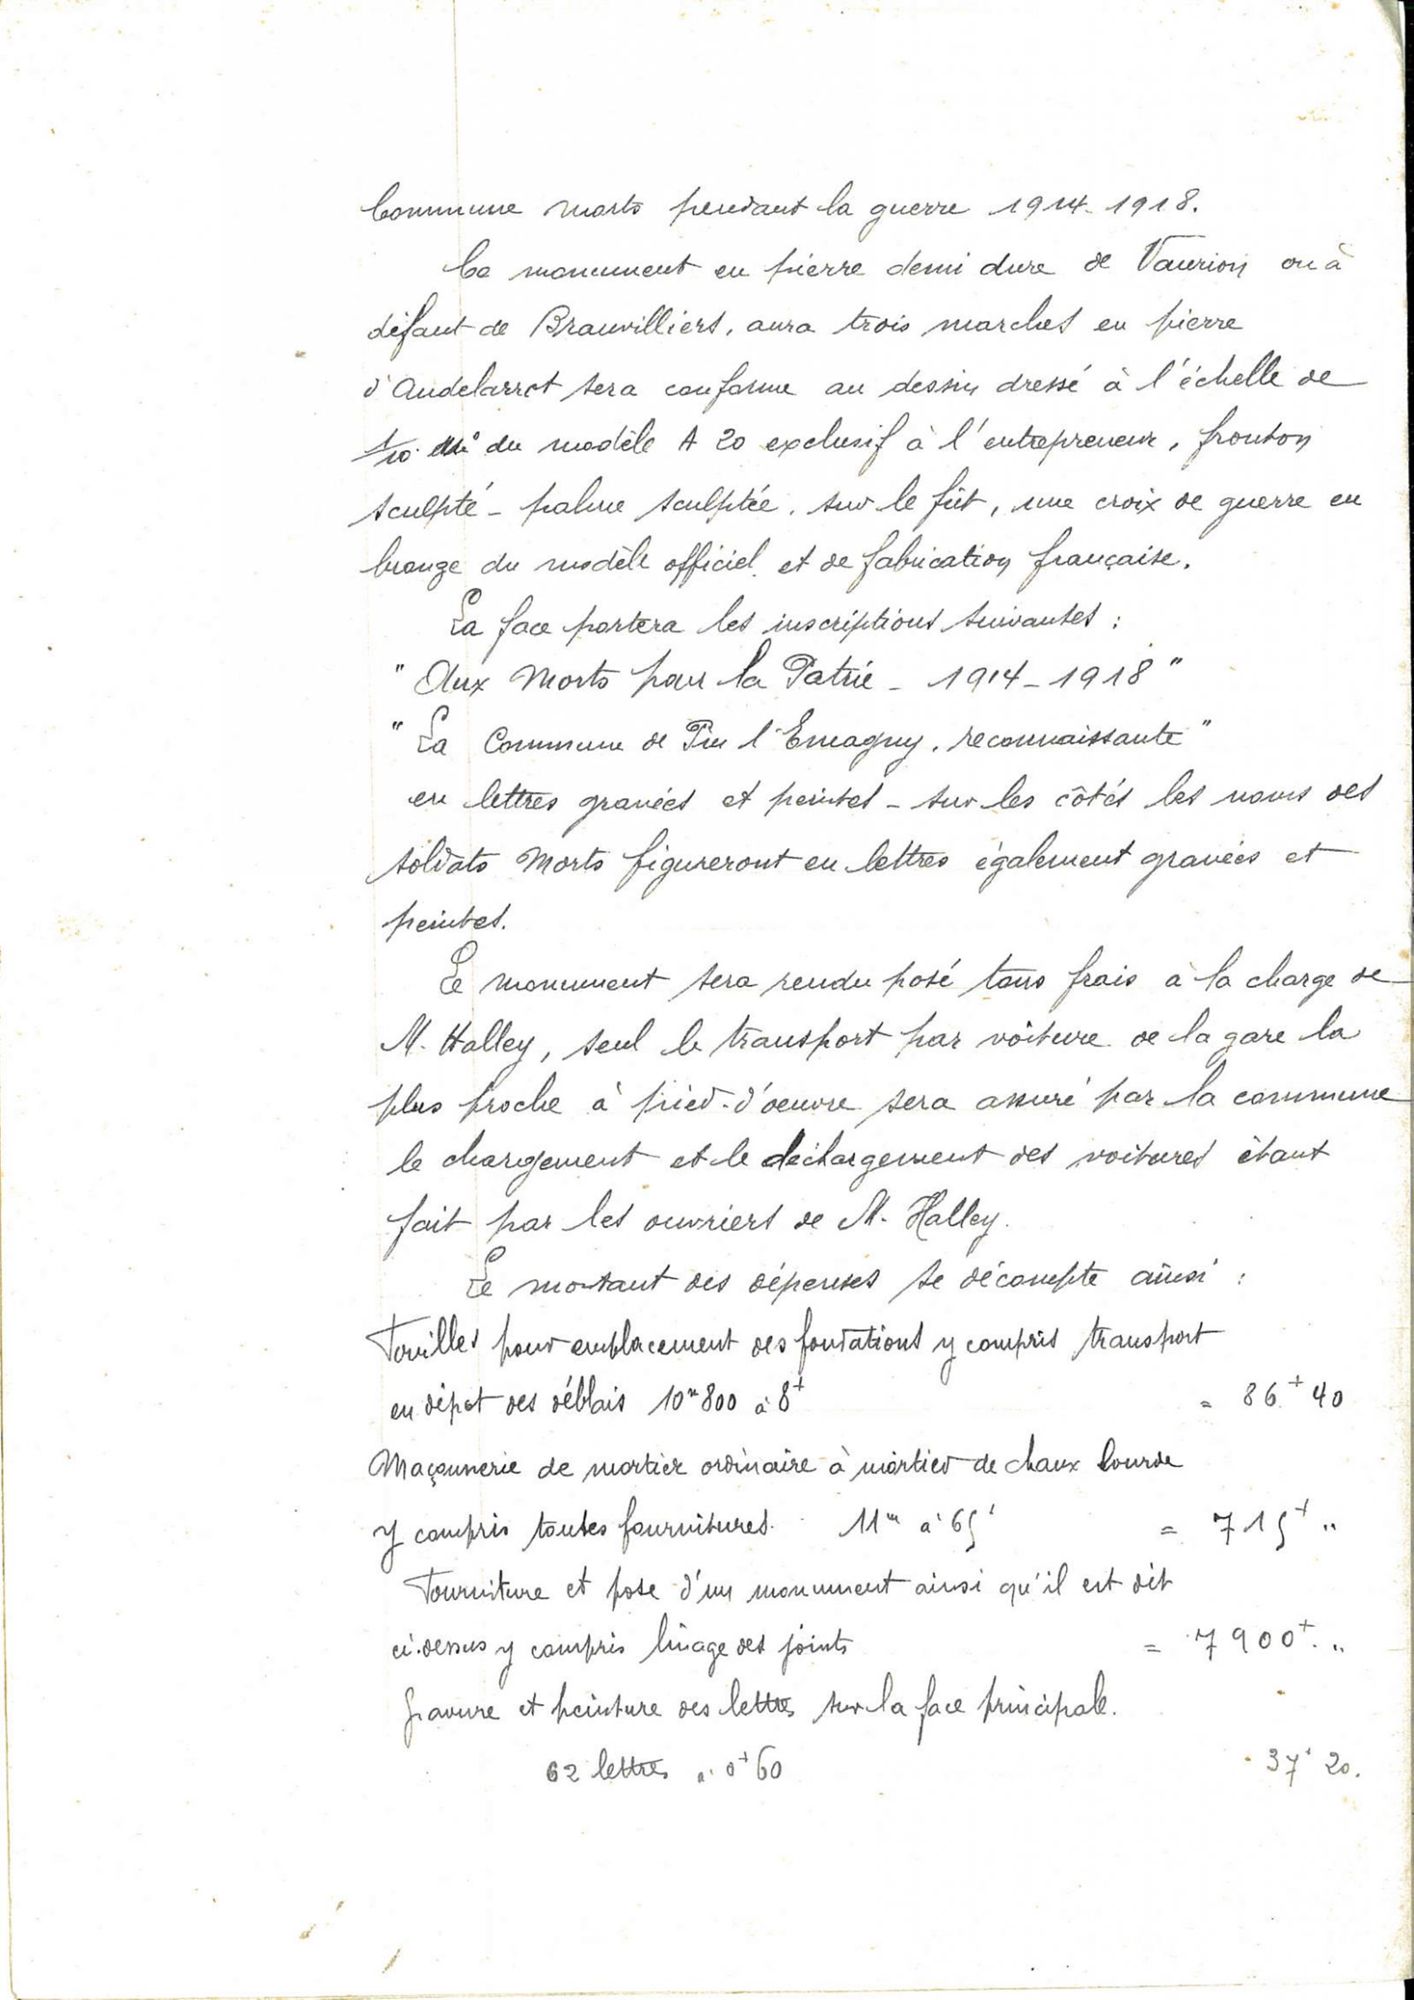 Commune morts pendant la guerre 1914-1918.
Ce monument en pierre demi dure de Vaurion ou à
défaut de Brauvilliers, aura trois marches en pierre
d'Andelarrot sera conforme au dessin dressé à l'échelle de
1/10 du modèle A 20 exclusif à l'entrepreneur, fronton
sculpté - palme sculptée, sur le fût, une croix de guerre en
bronze du modèle officiel et de fabrication française.
La face portera les inscriptions suivantes :
" Aux Morts pour la Patrie - 1914-1918 "
" La Commune de Pin l'Emagny, reconnaissante "
en lettres gravées et peintes - sur les côtés les noms des
soldats Morts figureront en lettres également gravées et
peintes.
Le monument sera rendu posé tous frais à la charge de
M. Halley, seul le transport par voiture de la gare la
plus proche à pied-d'oeuvre sera assuré par la commune
le chargement et le déchargement des voitures étant
fait par les ouvriers de M. Halley.
Le montant des dépenses se décompte ainsi :
Fouilles pour emplacement des fondations y compris transport
en dépôt des déblais 10m800 à 8f = 86f 40
Maçonnerie de mortier ordinaire à mortier de chaux lourde
y compris toutes fournitures. 11m à 65f = 715f "
Fourniture et pose d'un monument ainsi qu'il est dit
ci-dessus y compris linage des joints = 7900f. "
Gravure et peinture des lettres sur la face principale.
62 lettres à 0f60 37f 20.